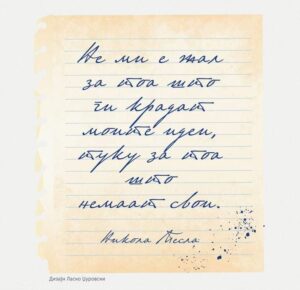 Не ми е жал
за тоа што
ги крадат
моите идеи,
туку за тоа
што
немаат свои.
Никола Тесла
Дизајн Ласко Џуровски